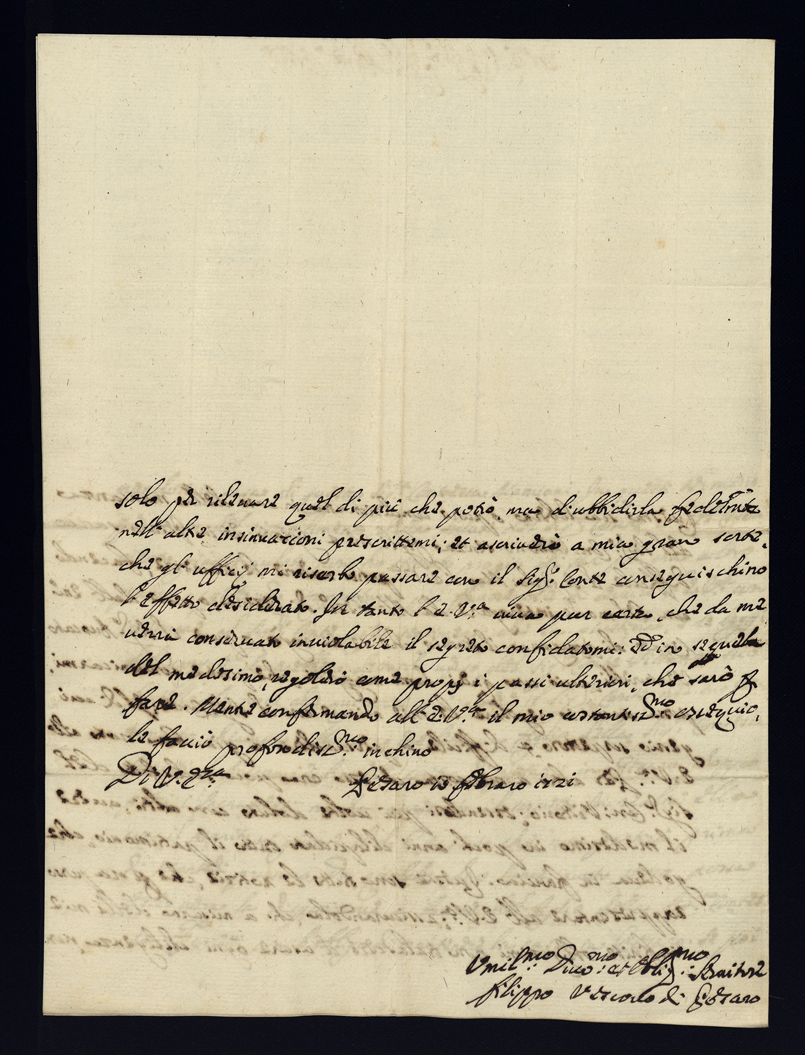 solo per rilevare quel di più che potrò, ma d'ubbidirla fedelm.te
nell'altre insinuazioni prescrittemi; et ascriverò a mia gran sorte,
che gl'uffizi mi riserbo passare con il Sig.r Conte conseguischino
l'effetto desiderato. In tanto l'E. V.ra viva pur certa, che da me
verrà conservato inviolabile il segreto confidatomi: ed in sequela
del medesimo, regolerò come propri i passi ulteriori, che sarò p
fare. Mentre confermando all'E. V.ra il mio costantis.mo ossequio,
le faccio profondis.mo inchino
Di V. Ecc.za
Pesaro febraro 1721
Umil.mo Div.mo et Oblig.mo Servitore
Filippo Vescovo di Pesaro